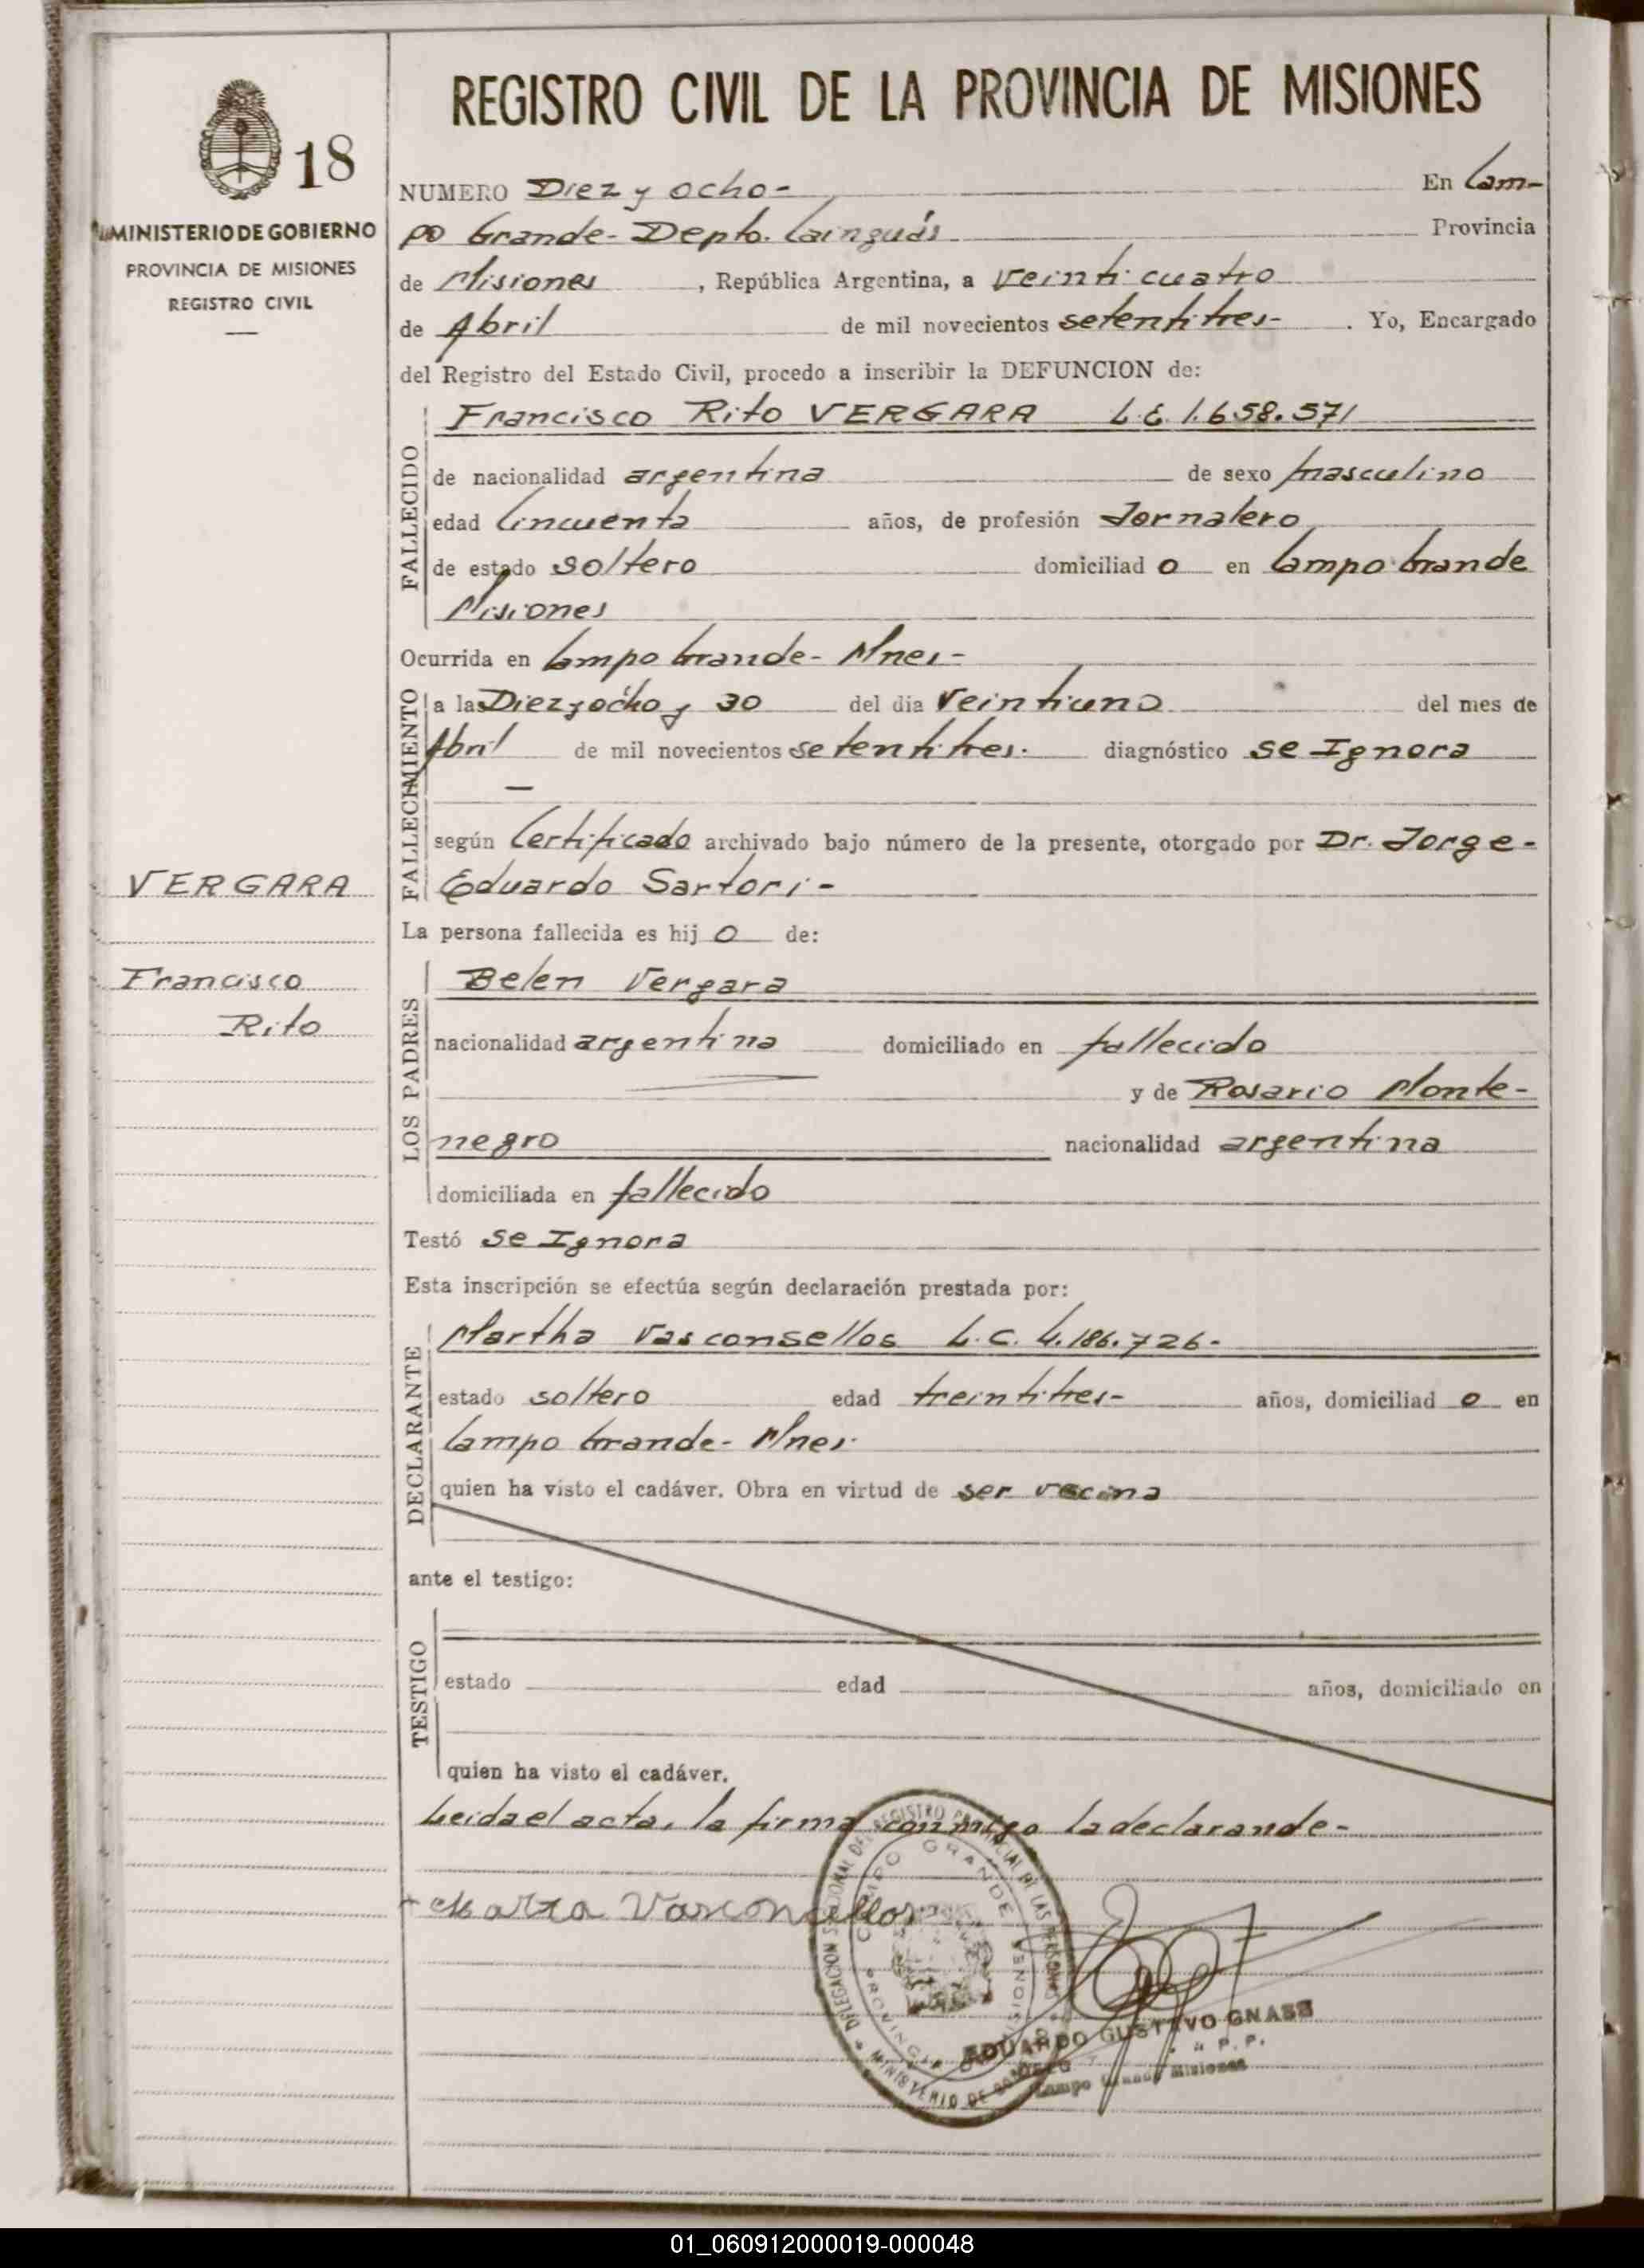 REGISTRO CIVIL DE LA PROVINCIA DE MISIONES
18
MINISTERIO DE GOBIERNO
PROVINCIA DE MISIONES
REGISTRO CIVIL
NUMERO Diez y ocho- En Cam-
po Grande- Depto. Cainguás Provincia
de Misiones , República Argentina, a veinticuatro
de Abril de mil novecientos setentitres- . Yo, Encargado
del Registro del Estado Civil, procedo a inscribir la DEFUNCION de:
FALLECIDO
Francisco Rito VERGARA L.E. 1.658.571
de nacionalidad argentina de sexo masculino
edad Cincuenta años, de profesión Jornalero
de estado soltero domiciliad o en Campo Grande
Misiones
Ocurrida en Campo Grande- Mnes-
FALLECIMIENTO
a las Diez y ocho y 30 del dia veintiuno del mes de
Abril de mil novecientos setentitres. diagnóstico se Ignora
—
según Certificado archivado bajo número de la presente, otorgado por Dr. Jorge-
Eduardo Sartori-
VERGARA
Francisco
Rito
La persona fallecida es hij o de:
LOS PADRES
Belen Vergara
nacionalidad argentina domiciliado en fallecido
y de Rosario Monte-
negro nacionalidad argentina
domiciliada en fallecido
Testó se Ignora
Esta inscripción se efectúa según declaración prestada por:
DECLARANTE
Martha Vasconsellos L.C. 4.186.726-
estado soltero edad treintitres- años, domiciliad o en
Campo Grande- Mnes.
quien ha visto el cadáver. Obra en virtud de ser vecina
ante el testigo:
TESTIGO
estado edad años, domiciliado en
quien ha visto el cadáver.
Leida el acta, la firma conmigo la declarande-
Marta Vasconcellos
DELEGACION SECCIONAL DEL REGISTRO PROVINCIAL DE LAS PERSONAS
CAMPO GRANDE MISIONES
PROVINCIA
MINISTERIO DE GOBIERNO
EDUARDO GUSTAVO GNASS
P. P.
Campo Grande Misiones
01_060912000019-000048